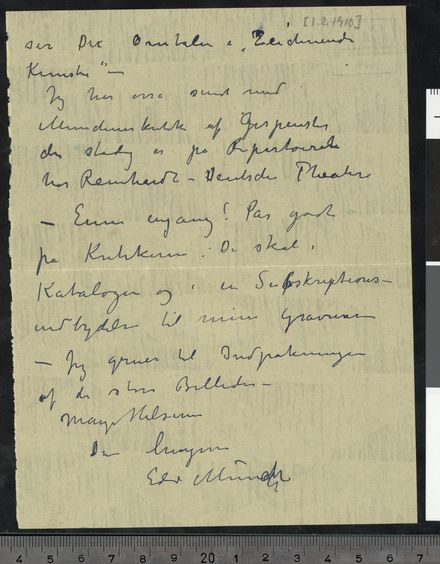 [1.2.1910]
ser Dr Omtalen i „Zeichnende
Künste" –
Jeg har også sendt med
Münchnerkritik af Gespenster
der stadig er på Repertoiret
hos Reinhardt – Deutsches Theater
– Ennu engang! Pas godt
på Kritikerne! De skal i
Katalogen og i en Subskriptions–
indbydelse til mine Gravurer
– Jeg gruer til Indpakningen
af de store Billeder –
Mange Hilsener
Din hengivne
Edv Munch
4 5 6 7 8 9 20 1 2 3 4 5 6 7